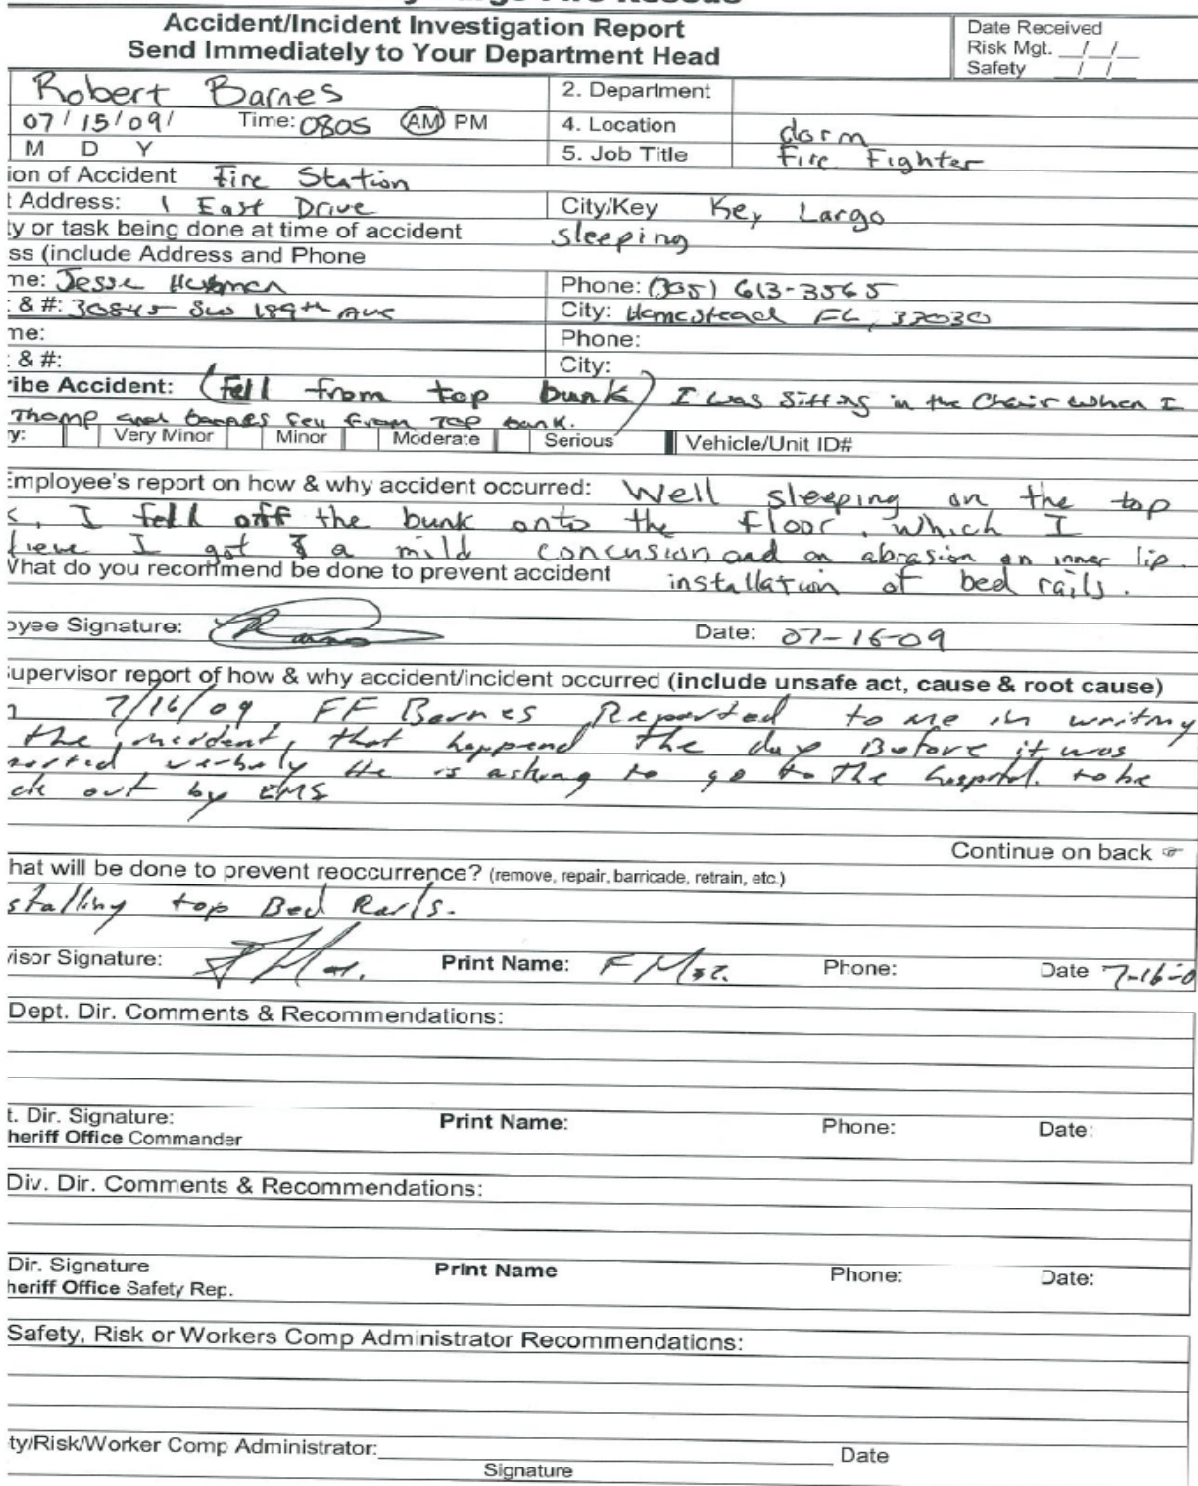 Accident/Incident Investigation Report
Send Immediately to Your Department Head
Date Received
Risk Mgt. __/__/__
Safety __/__/__
Robert Barnes
2. Department
07/15/09/ Time: 0805 AM PM
4. Location dorm
M D Y
5. Job Title Fire Fighter
ion of Accident Fire Station
t Address: 1 East Drive City/Key Key Largo
ty or task being done at time of accident sleeping
ss (include Address and Phone
me: Jesse Phone: (305) 613-3565
& #: 30845 SW 189th Ave City: Homestead FL, 33030
me: Phone:
& #: City:
ribe Accident: (Fell from top bunk) I was Sitting in the Chair when I
Thomp and Barnes fell from Top bunk.
y: Very Minor Minor Moderate Serious Vehicle/Unit ID#
Employee's report on how & why accident occurred: Well sleeping on the top
k, I fell off the bunk onto the floor, which I
lieve I got a mild concusion and an abrasion on inner lip.
What do you recommend be done to prevent accident installation of bed rails.
oyee Signature: Date: 07-16-09
Supervisor report of how & why accident/incident occurred (include unsafe act, cause & root cause)
n 7/16/09, FF Barnes Reported to me in writing
the incident, that happend the day Before it was
ported verbaly He is asking to go to the hospital. to be
ck out by EMS
Continue on back ☞
hat will be done to prevent reoccurrence? (remove, repair, barricade, retrain, etc.)
stalling top Bed Rails.
visor Signature: Print Name: Phone: Date 7-16-0
Dept. Dir. Comments & Recommendations:
t. Dir. Signature: Print Name: Phone: Date:
heriff Office Commander
Div. Dir. Comments & Recommendations:
Dir. Signature Print Name Phone: Date:
heriff Office Safety Rep.
Safety, Risk or Workers Comp Administrator Recommendations:
ty/Risk/Worker Comp Administrator: Date
Signature